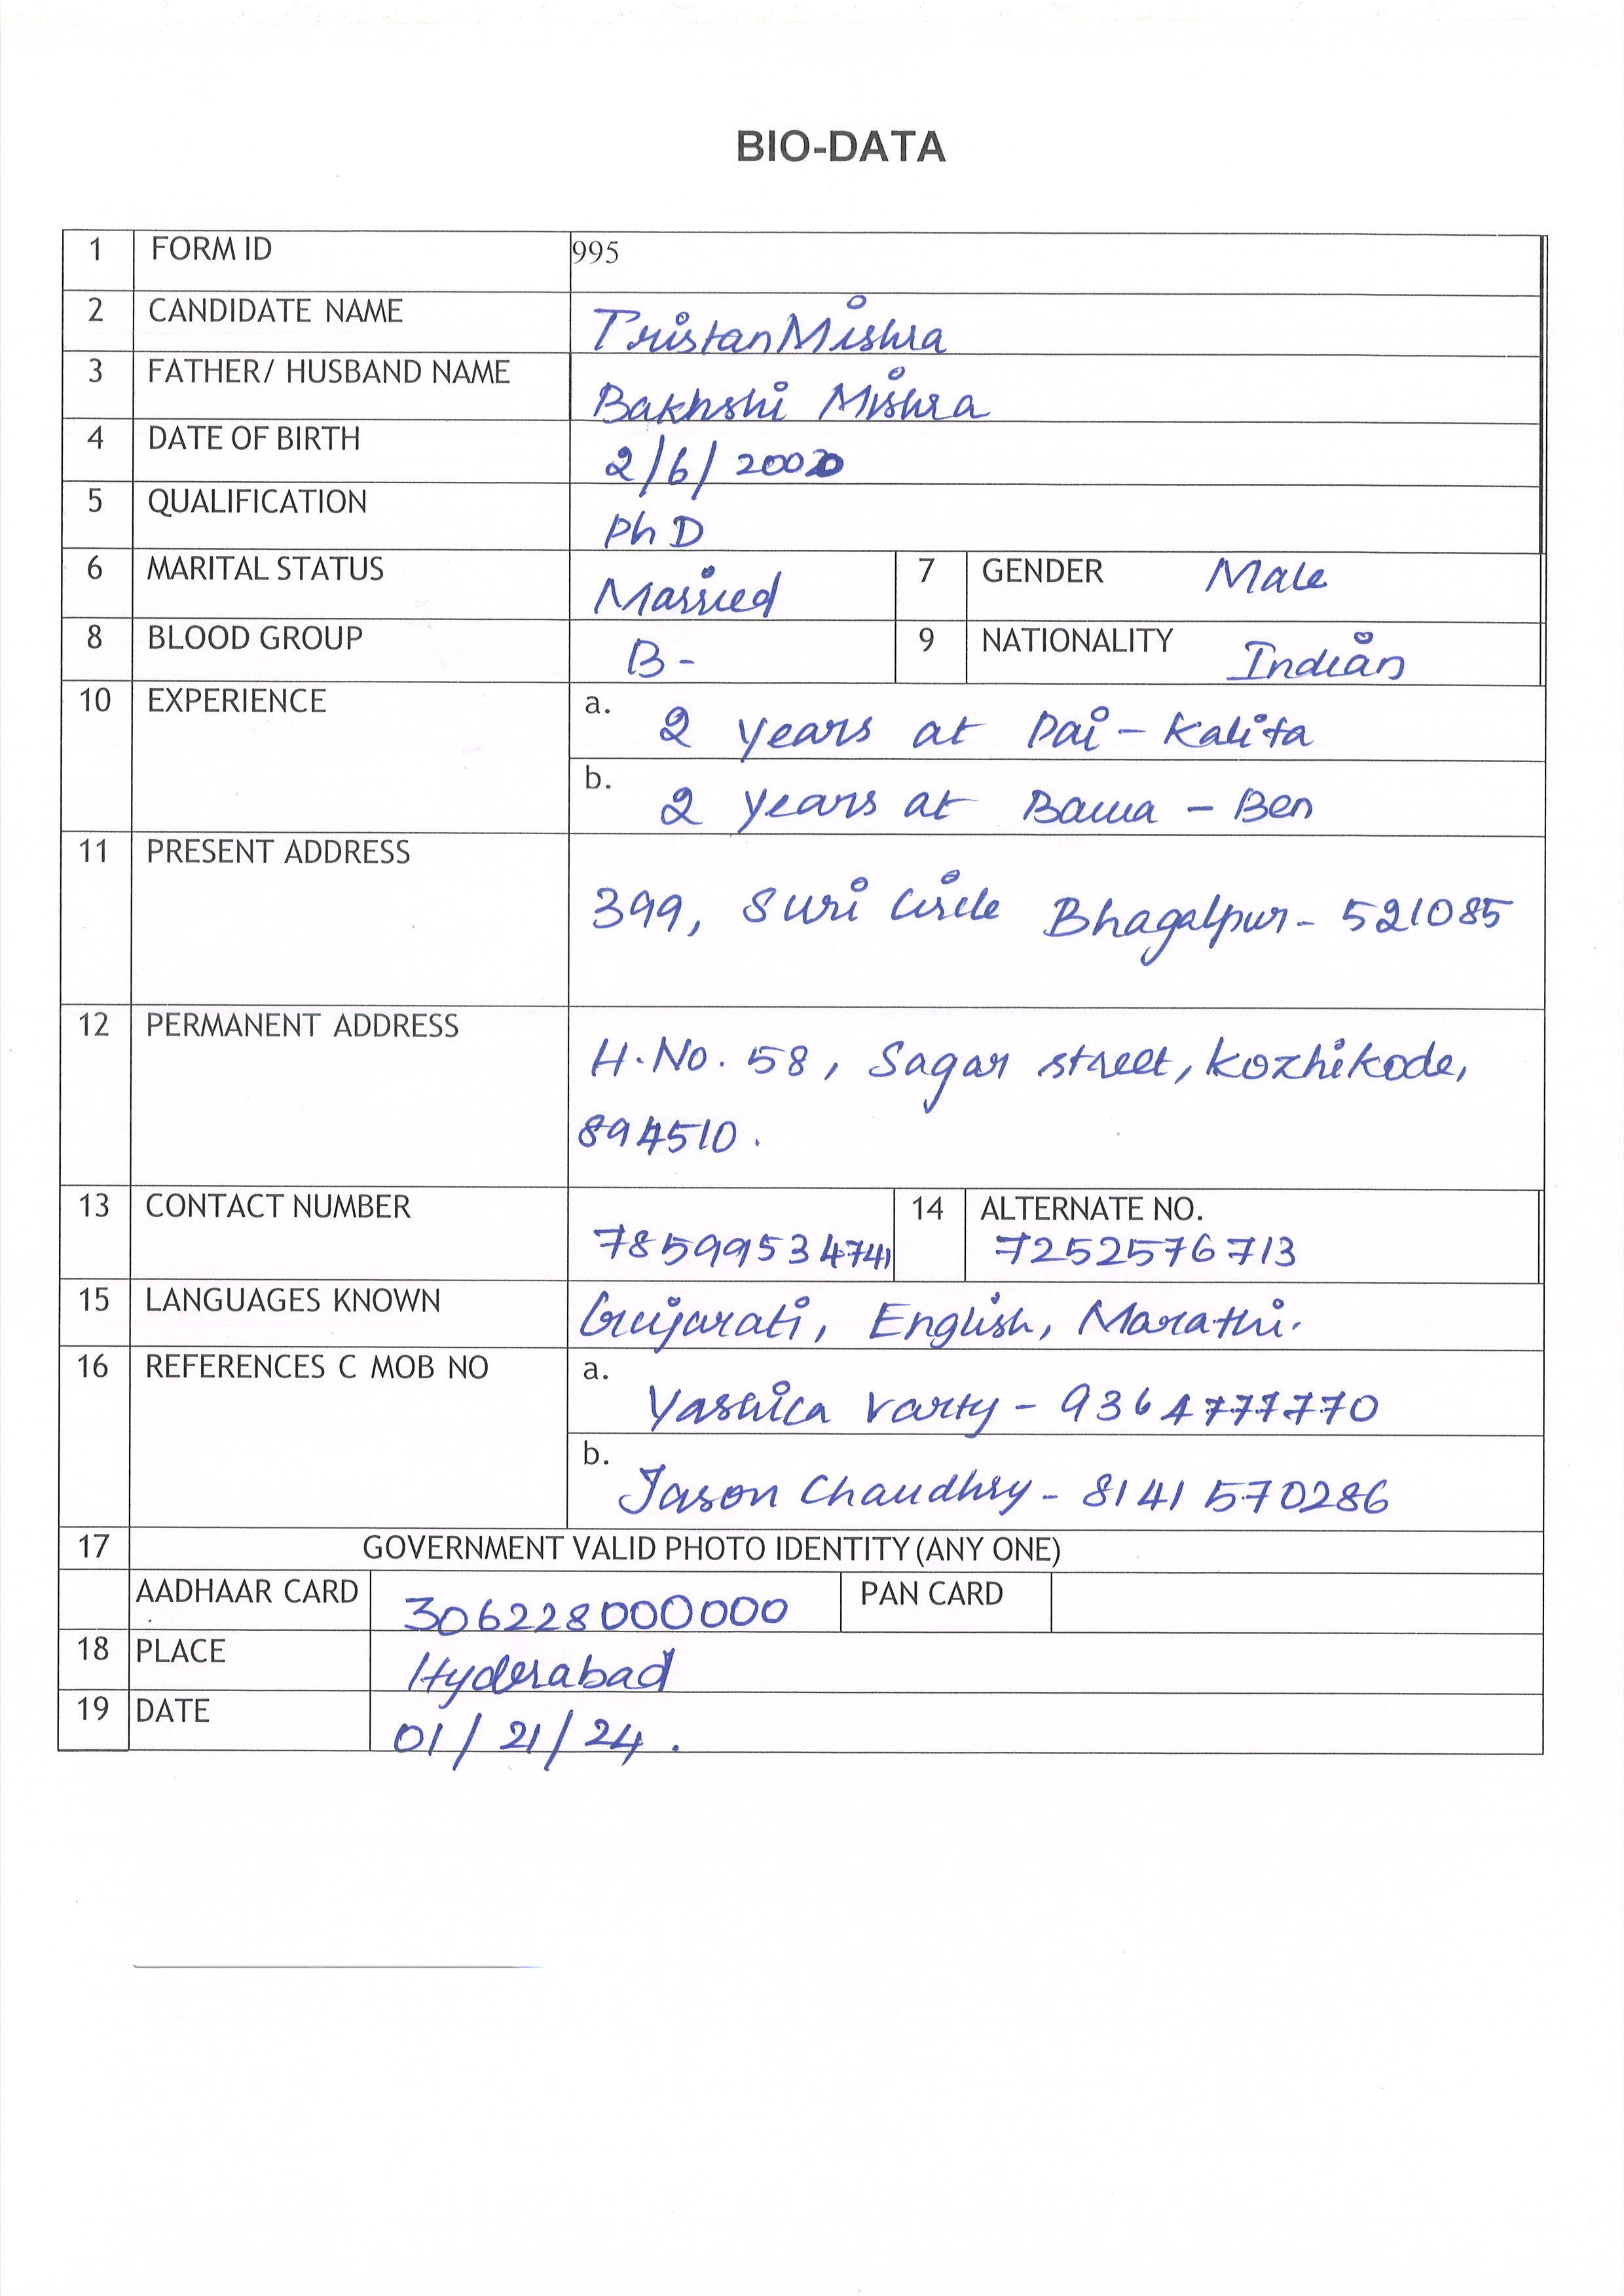 BIO-DATA
1 FORM ID 995
2 CANDIDATE NAME Tristan Mishra
3 FATHER/ HUSBAND NAME Bakhshi Mishra
4 DATE OF BIRTH 2/6/2000
5 QUALIFICATION PhD
6 MARITAL STATUS Married 7 GENDER Male
8 BLOOD GROUP B- 9 NATIONALITY Indian
10 EXPERIENCE a. 2 years at Pai - Kalita
b. 2 years at Bawa - Ben
11 PRESENT ADDRESS
399, Suri Circle Bhagalpur - 521085
12 PERMANENT ADDRESS
H.No. 58, Sagar street, Kozhikode,
894510.
13 CONTACT NUMBER 78599534741 14 ALTERNATE NO.
7252576713
15 LANGUAGES KNOWN Gujarati, English, Marathi.
16 REFERENCES C MOB NO a. Yashica Varty - 9364777770
b. Jason Chaudhry - 8141570286
17 GOVERNMENT VALID PHOTO IDENTITY (ANY ONE)
AADHAAR CARD 306228000000 PAN CARD
18 PLACE Hyderabad
19 DATE 01/21/24.